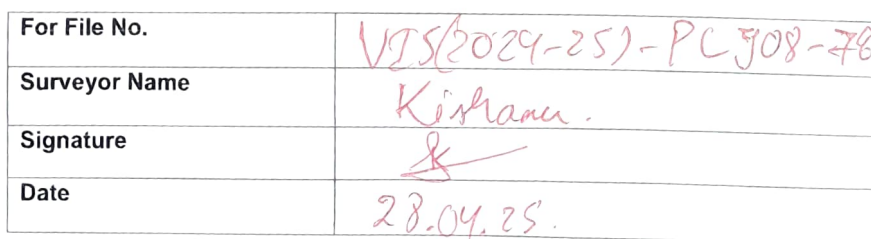 For File No. VIS(2024-25)-PC908-78
Surveyor Name
Signature
Date 28.04.25.